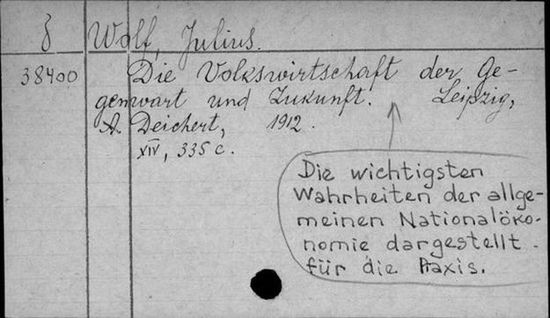 Wolf, Julius.
38400 Die Volkswirtschaft der Ge-
genwart und Zukunft. Leipzig,
A. Deichert, 1912.
XIV, 335 c.
Die wichtigsten
Wahrheiten der allge-
meinen Nationalöko-
nomie dargestellt
für die Praxis.